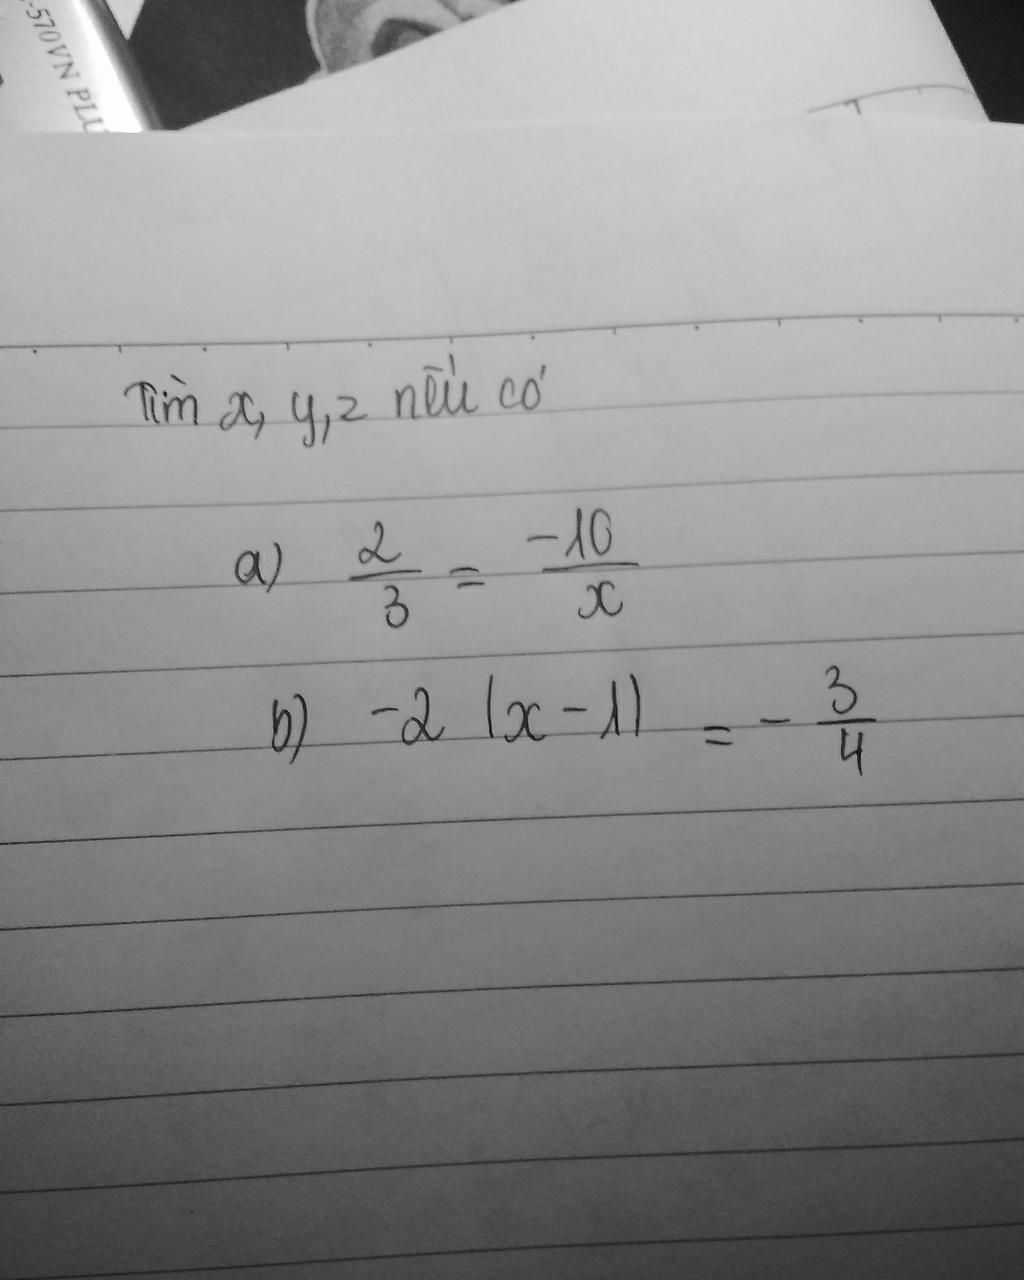 -570VN PLU
Tìm x, y, z nếu có
a) 2/3 = -10/x
b) -2 |x - 1| = - 3/4